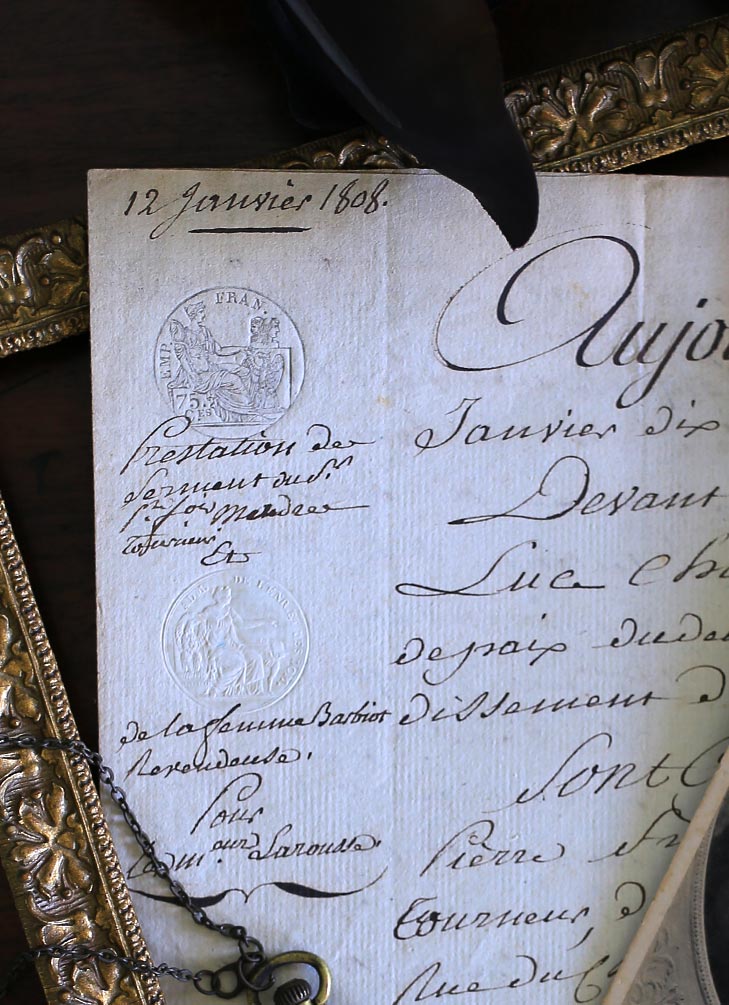 12 Janvier 1808.
EMP. FRAN.
75.
CES
Prestation de
Serment du Sr.
Mandre
Tourneur
Et
de la femme Barbiot
Revendeuse.
Pour
Larousse.
Aujo
Janvier dix
Devant
Luc Ch
de paix du de
dissement d
Sont C
Pierre fr
Tourneur, d
Rue du C